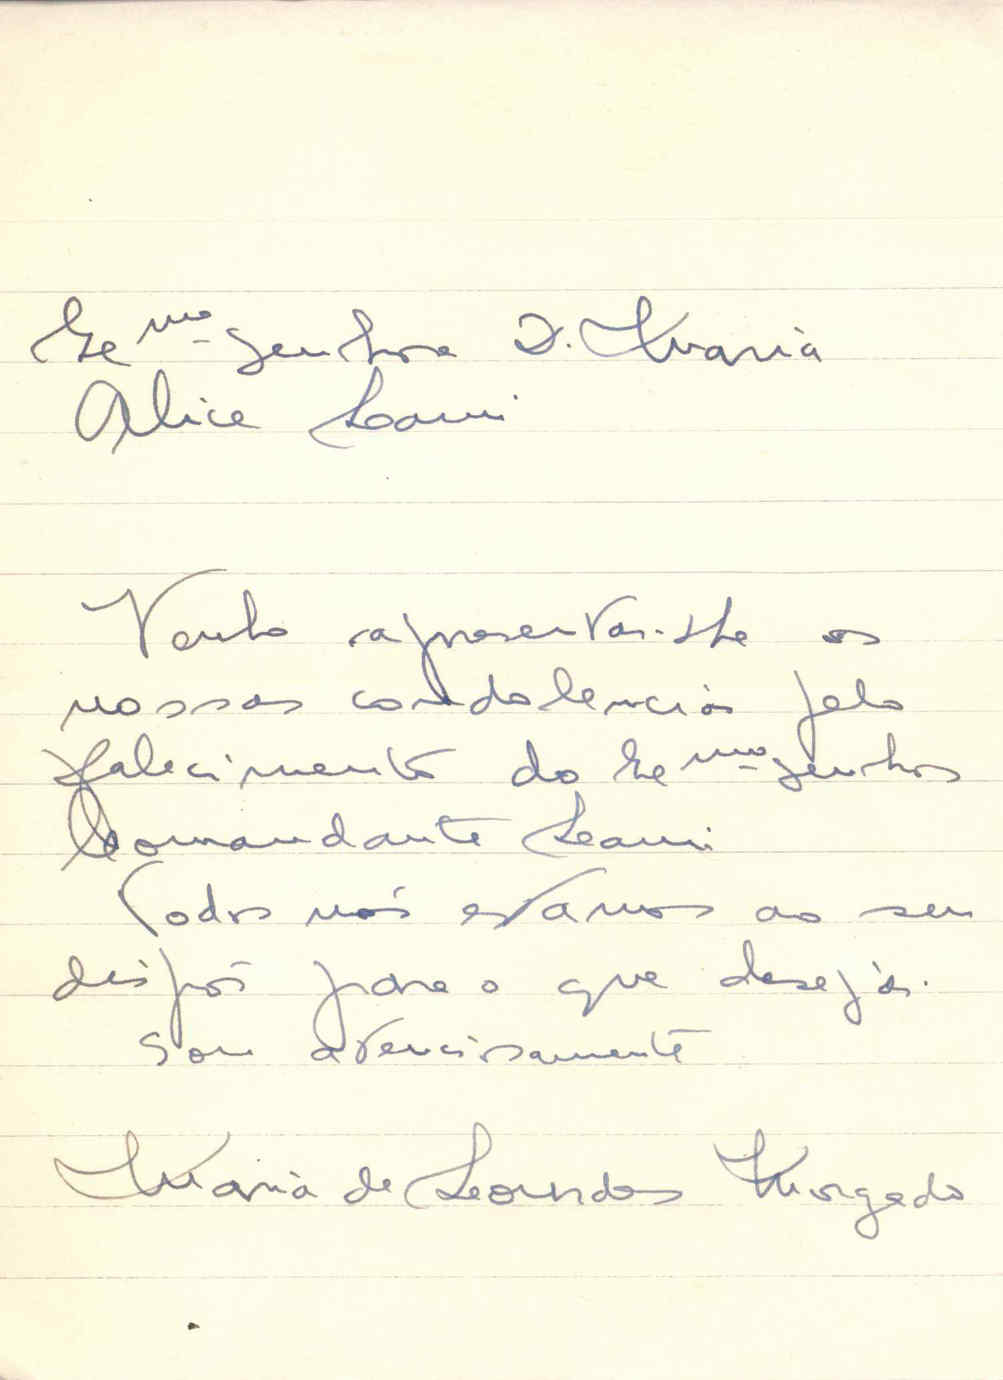 Exmo Senhora D. Maria
Alice Lami
Venho apresentar-lhe os
nossas condolencias pelo
falecimento do Exmo Senhor
Comandante Lami.
Todos nós estamos ao seu
dispôr para o que desejar.
Sou atenciosamente
Maria de Lourdes Morgado